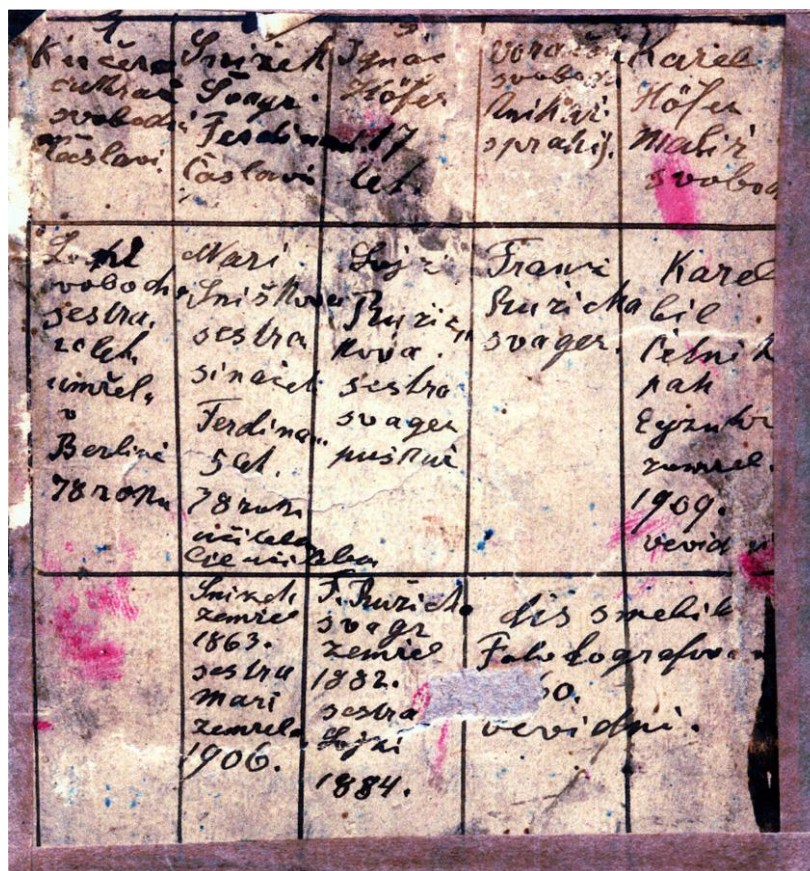 Kučera
cukrař
svobodni
Časlavi.
Snižek
Švagr.
Ferdinand.
Časlavi
Ignác
Höfer
17
let.
svobodn
knihař
Karel
Höfer
maliř
svobod
svobodna
sestra.
let.
umřela
v
Berlině
78 roku
Mari
Snižkova
sestra
sinaček
Ferdinan
5 let.
78 roku
učitela
Lojzi
Ružič„
kova.
sestra
svager
puškař
Franci
Ružička
svager.
Karel
bil
četnik
pak
zemřel.
1909.
vevidni
Snizek
zemřel
1863.
sestra
Mari
zemřela
1906.
F. Ružička
svagr
zemřel
1882.
sestra
Lojzi
1884.
dis sme bili
Foto tografova
60.
vevidni.